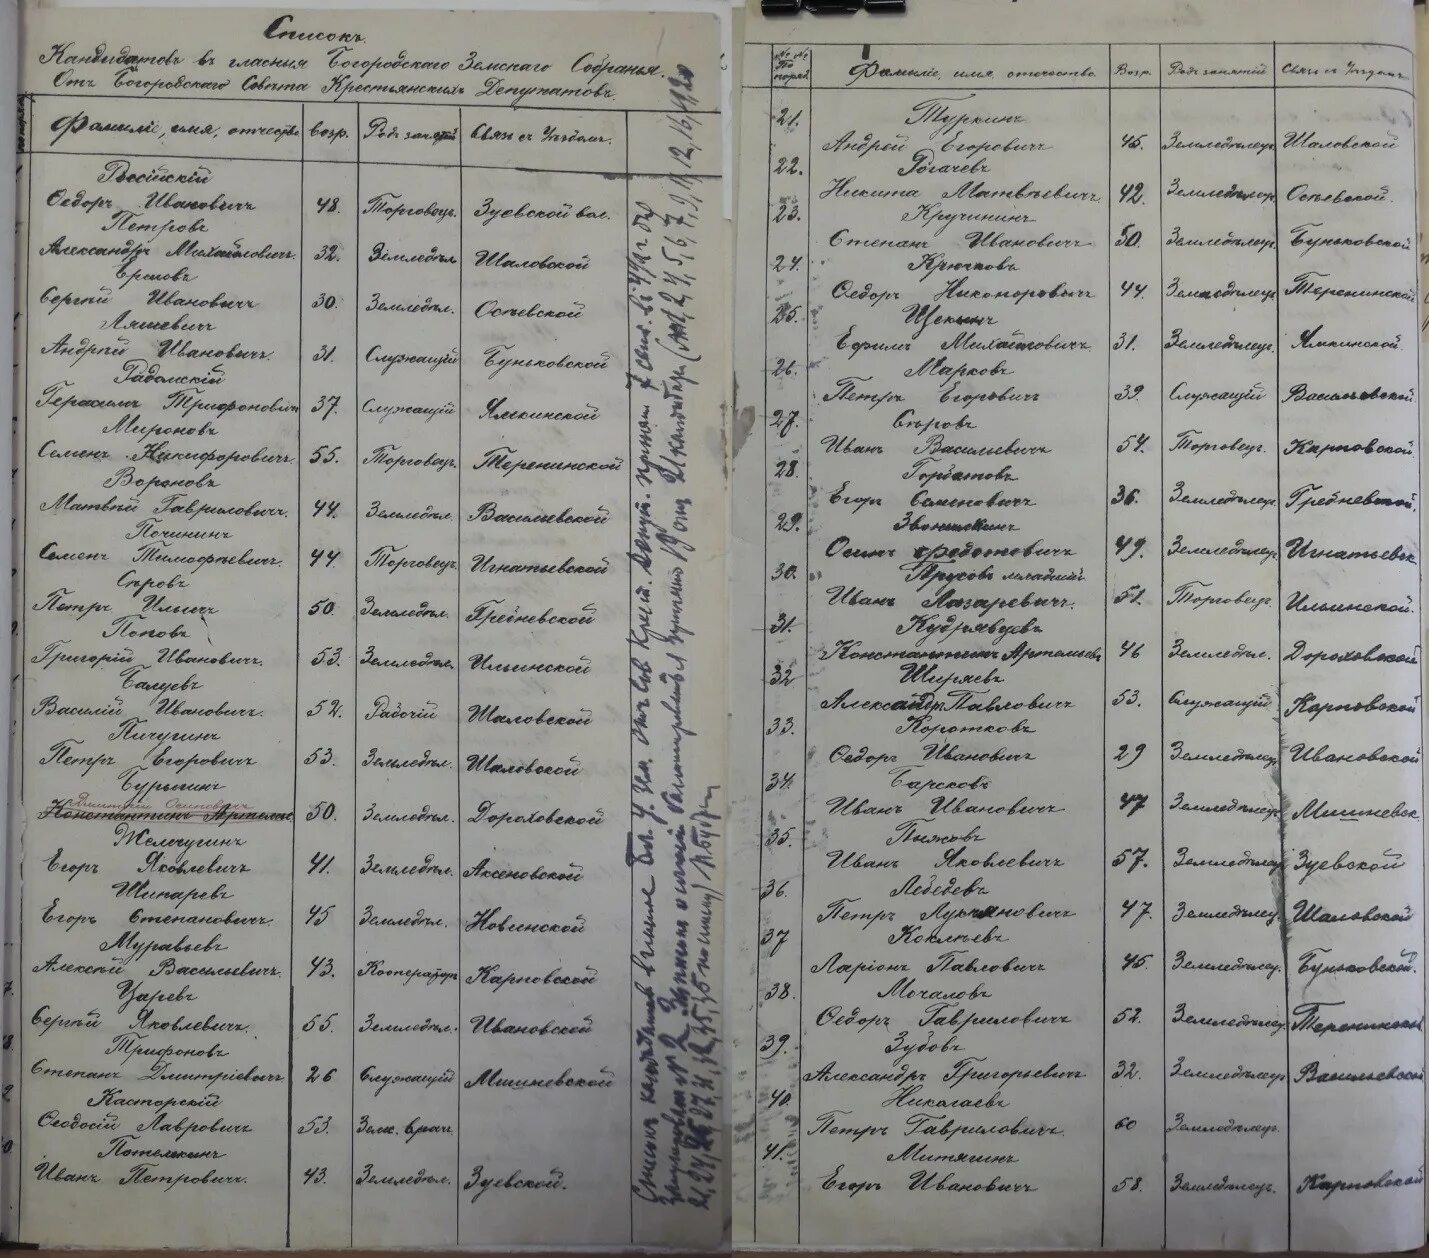 Списокъ
Кандидатовъ въ гласныя Богородскаго Земскаго Собранья.
Отъ Богородскаго Совѣта Крестьянскихъ Депутатовъ.
Фамиліе, имя, отчество Возр. Родъ занятій Связь съ Уѣздомъ.
Россійскій
Ѳедоръ Ивановичъ 48. Торговецъ. Зуевской вол.
Петровъ
Александръ Михайловичъ. 32. Земледѣл. Шаловской
Ершовъ
Сергѣй Ивановичъ 30. Земледѣл. Осѣевской
Ляшевичъ
Андрѣй Ивановичъ. 31. Служащій Буньковской
Радомскій
Герасимъ Трифоновичъ 37. Служащій Ямкинской
Мироновъ
Семенъ Никифоровичъ. 55. Торговецъ. Теренинской
Вороновъ
Матвѣй Гавриловичъ. 44. Земледѣл. Васильевской
Починкинъ
Семенъ Тимофѣевичъ. 44. Торговецъ. Игнатьевской
Сѣровъ
Петръ Ильичъ 50. Земледѣл. Гребневской
Поповъ
Григорій Ивановичъ. 53. Земледѣл. Ильинской
Балуевъ
Василій Ивановичъ. 52. Рабочій Шаловской
Пичугинъ
Петръ Егоровичъ 53. Земледѣл. Шаловской
Бурыгинъ
Дмитрій Осиповичъ
Константинъ Артемье 50. Земледѣл. Дороховской
Жемчугинъ
Егоръ Яковлевичъ 41. Земледѣл. Аксеновской
Шинаревъ
Егоръ Степановичъ. 45 Земледѣл. Новинской
Муравьевъ
Алексѣй Васильевичъ. 43. Кооператоръ Карповской
Царевъ
Сергѣй Яковлевичъ. 55. Земледѣл. Ивановской
Трифоновъ
Степанъ Дмитріевичъ 26 Служащій Мишневской
Касторскій
Ѳеодосій Лавровичъ 53. Земс. врачъ
Потемкинъ
Иванъ Петровичъ. 43. Земледѣл. Зуевской.
№№ по поряд. Фамиліе, имя отчество Возр. Родъ занятій Связь съ Уѣздомъ
21. Туркинъ
Андрей Егоровичъ 45. Земледѣлецъ. Шаловской
22. Рогачевъ
Никита Матвѣевичъ. 42. Земледѣлецъ. Осѣевской.
23. Кручининъ
Степанъ Ивановичъ 50. Земледѣлецъ. Буньковской
24. Крючковъ
Ѳедоръ Никоноровичъ 44. Земледѣлецъ. Теренинской
25. Щекинъ
Ефимъ Михайловичъ. 31. Земледѣлецъ. Ямкинской.
26. Марковъ
Петръ Егоровичъ 39. Служащій Васильевской
27. Сѣровъ
Иванъ Васильевичъ 54. Торговецъ. Карповской.
28. Горбатовъ
Егоръ Семеновичъ 36. Земледѣлецъ. Гребневской.
29. Звонилкинъ
Осипъ Федотовичъ 49. Земледѣлецъ. Игнатьевск
30. Трусовъ младшій
Иванъ Лазаревичъ. 51. Торговецъ. Ильинской.
31. Кудрявцевъ
Константинъ Артемьев 46 Земледѣл. Дороховской
32 Ширяевъ
Александръ Павловичъ 53. Служащій Карповской
33. Коротковъ
Ѳедоръ Ивановичъ 29 Земледѣлец Ивановской
34. Барсковъ
Иванъ Ивановичъ 47 Земледѣлец Мишневск.
35. Пыжовъ
Иванъ Яковлевичъ 57. Земледѣлец. Зуевской
36. Лебедевъ
Петръ Лукьяновичъ 47. Земледѣлец. Шаловской
37 Коклѣевъ
Ларіонъ Павловичъ 45. Земледѣлец. Буньковской.
38. Мочаловъ
Ѳедоръ Гавриловичъ 52. Земледѣлец. Теренинской
39. Зубовъ
Александръ Григорьевичъ 32. Земледѣлецъ Васильевской
40. Никогаевъ
Петръ Гавриловичъ. 60 Земледѣлецъ.
41. Митягинъ
Егоръ Ивановичъ 58. Земледѣлецъ. Карповской